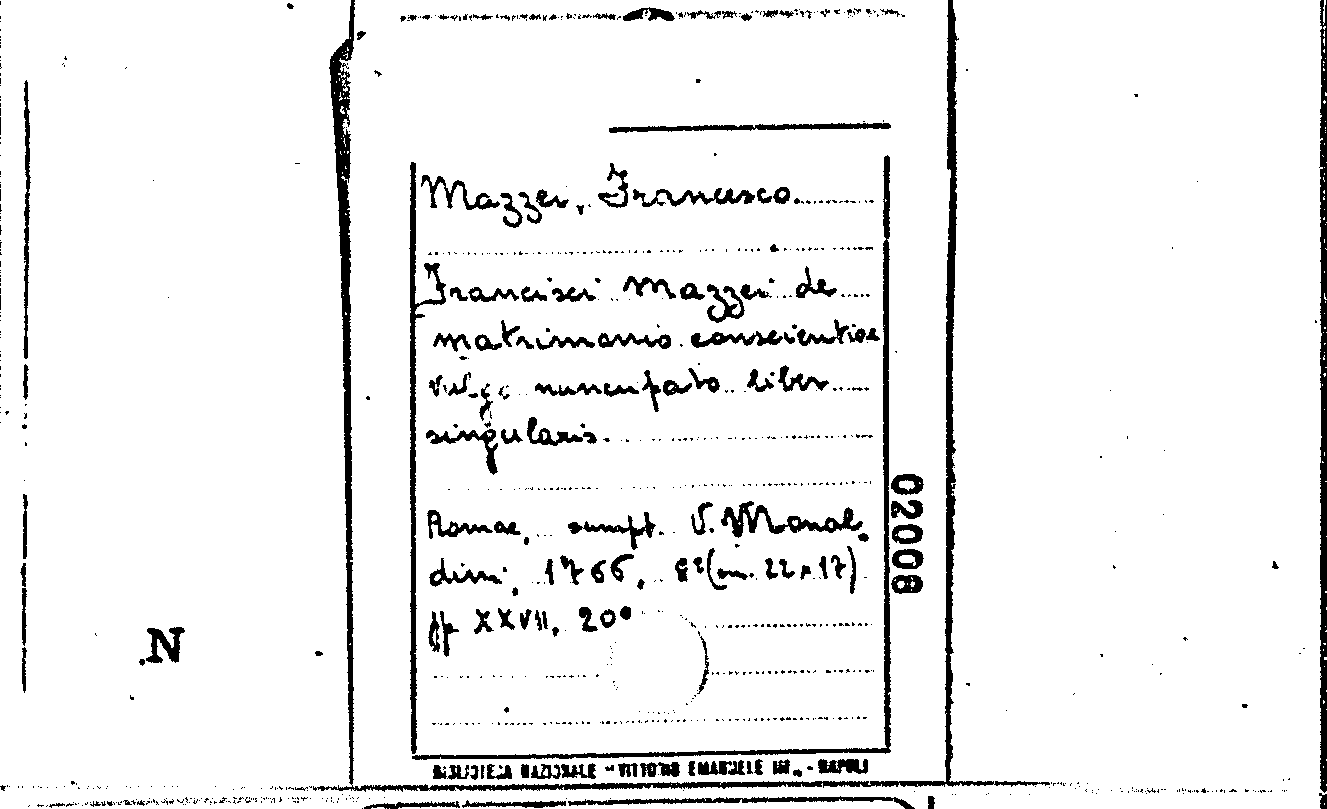 Mazzei, Francesco.
Francisci Mazzei de
matrimonio conscientiae
vulgo nuncupato liber
singularis.
Romae, sumpt. V. Monal.
dini, 1766, 8º (cm. 22x17)
pp XXVII, 200
02008
.N
BIBLIOTECA NAZIONALE "VITTORIO EMANUELE III" - NAPOLI